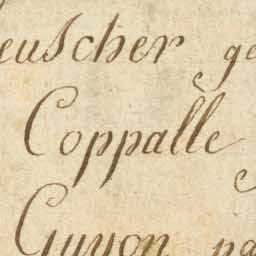 euscher ge
Coppallè
Guyon pa